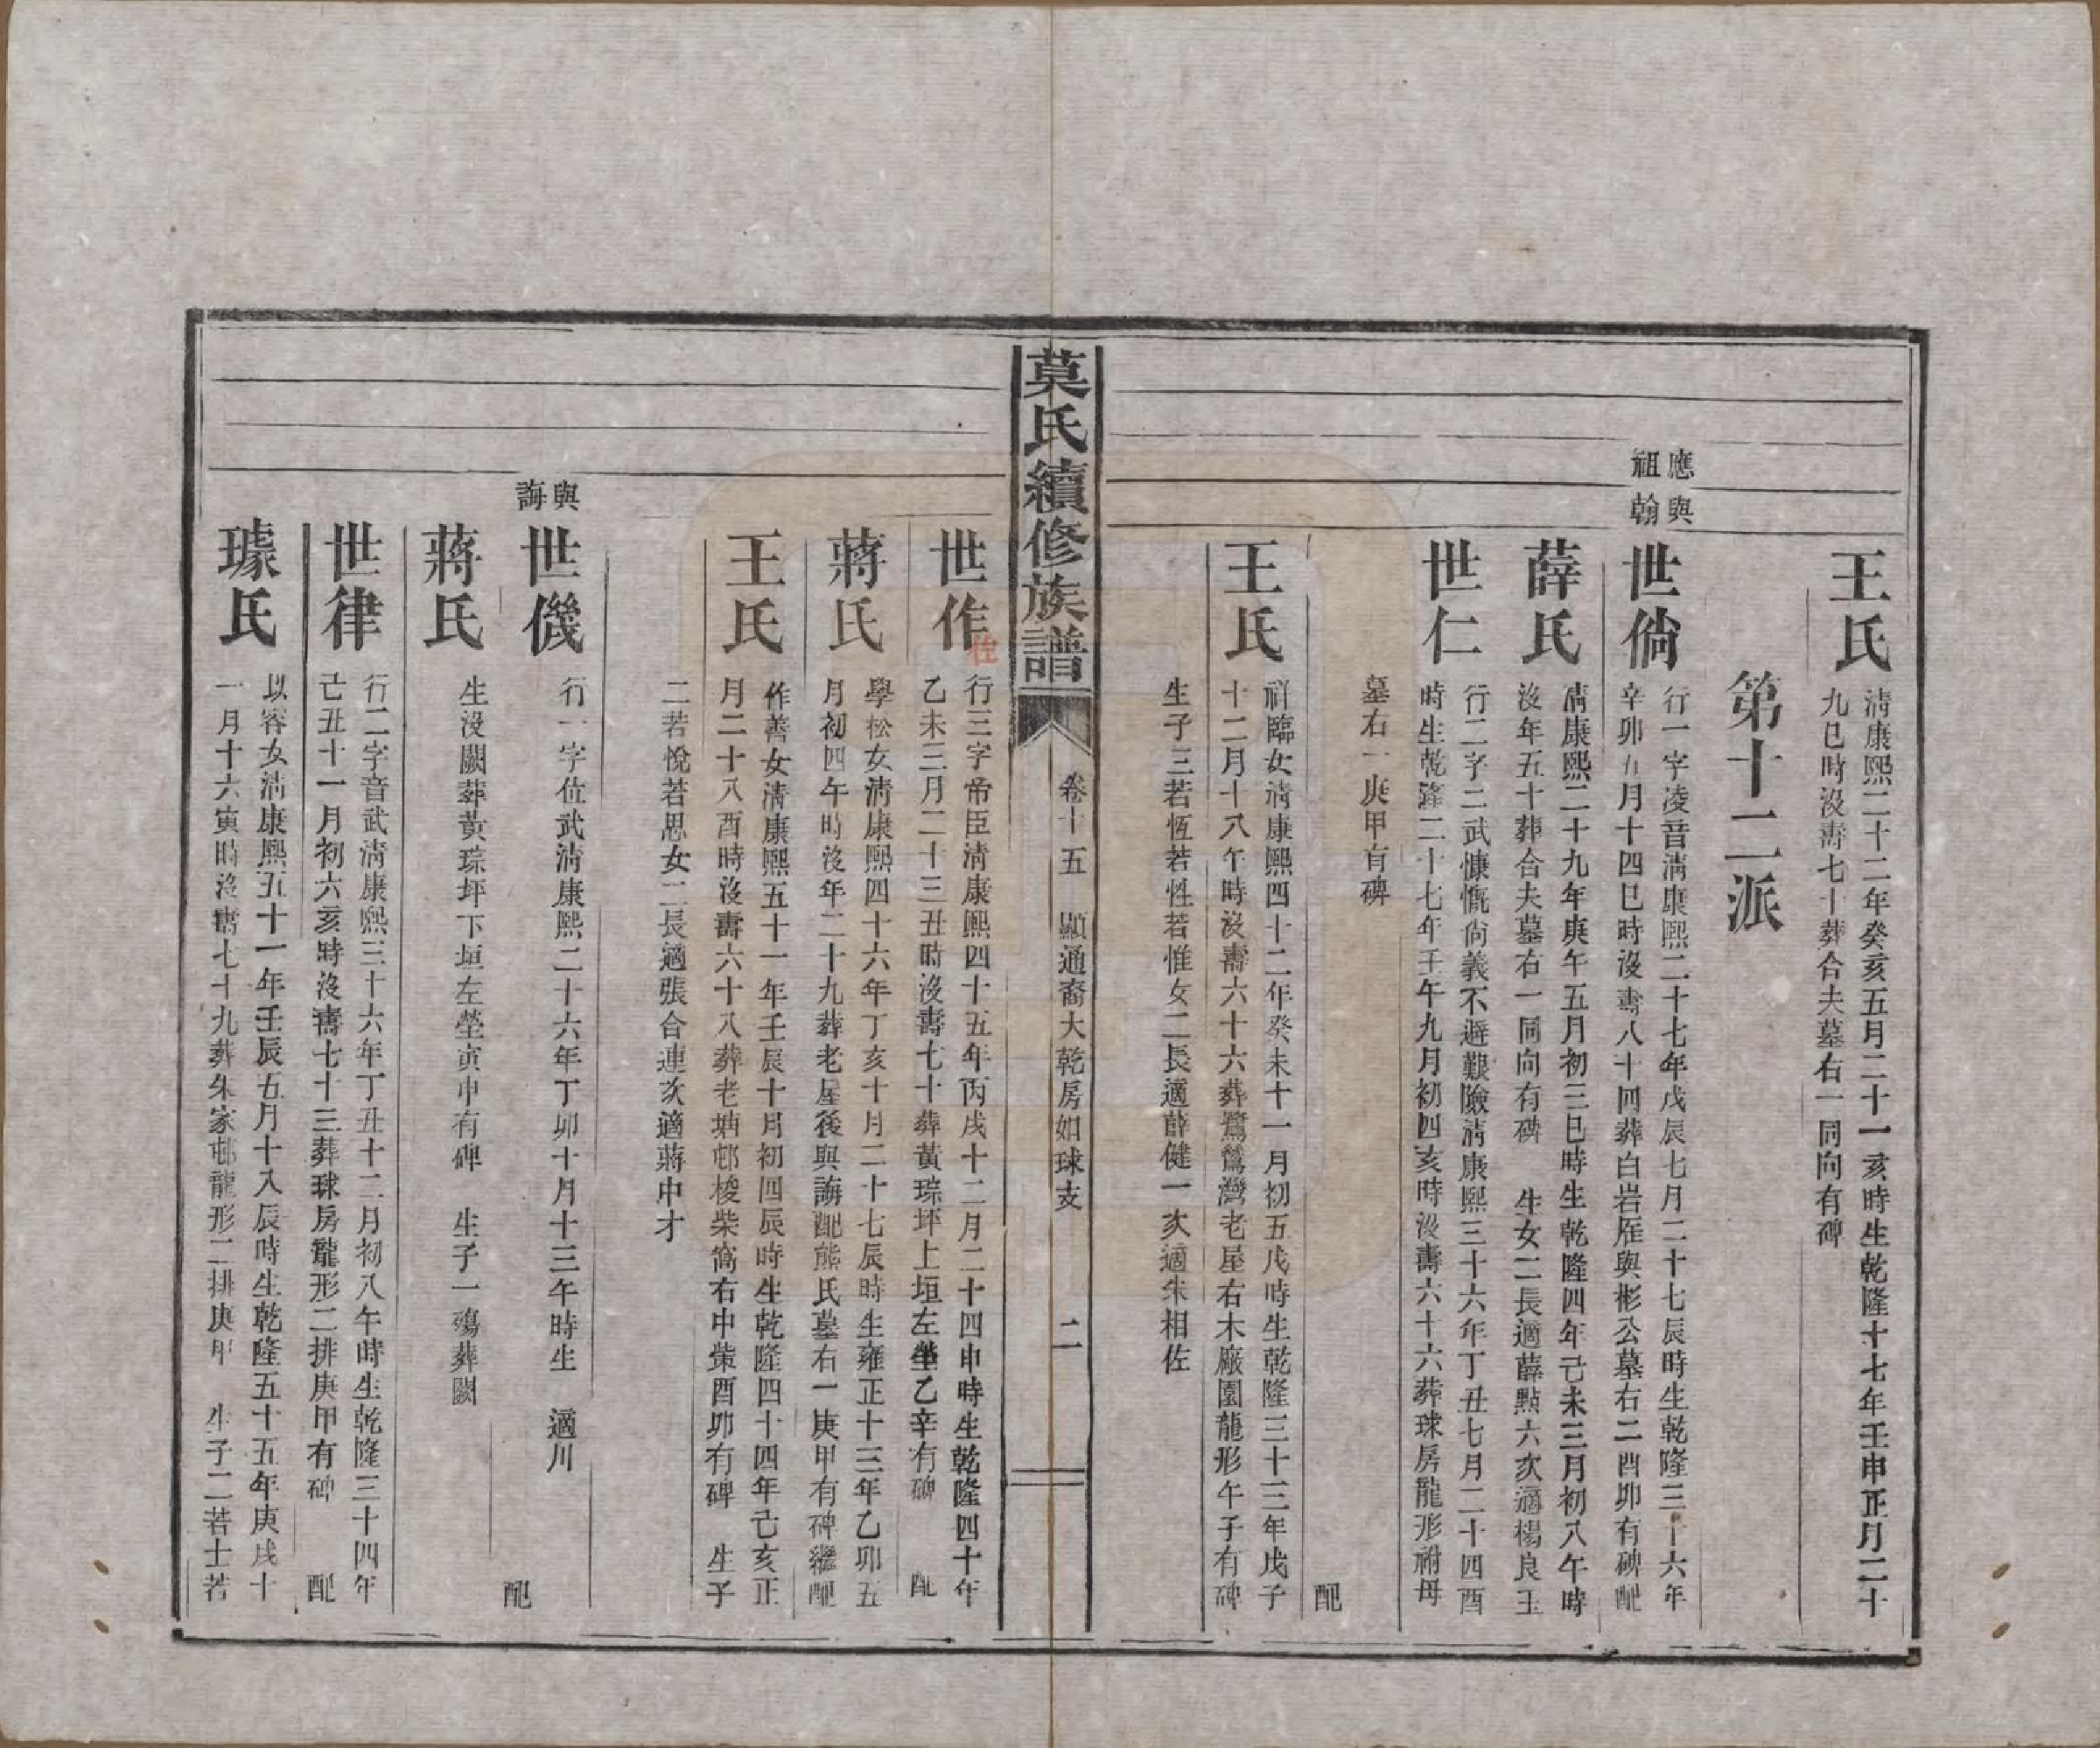 王氏
淸康熙二十二年癸亥五月二十一亥時生乾隆十七年壬申正月二十
九巳時沒壽七十葬合夫墓右一同向有碑
第十二派
應與
祖翰
世倘
行一字凌音淸康熙二十七年戊辰七月二十七辰時生乾隆三十六年
辛卯九月十四巳時沒壽八十四葬白岩雁與彬公墓右二酉卯有碑配
薛氏
淸康熙二十九年庚午五月初三巳時生乾隆四年己未三月初八午時
沒年五十葬合夫墓右一同向有碑 生女二長適薛點六次適楊良玉
世仁
行二字二武慷慨尙義不避艱險淸康熙三十六年丁丑七月二十四酉
時生乾隆二十七年壬午九月初四亥時沒壽六十六葬球房龍形祔母
墓右一庚甲有碑
配
王氏
祥臨女淸康熙四十二年癸未十一月初五戌時生乾隆三十三年戊子
十二月十八午時沒壽六十六葬鷺鷥灣老屋右木廠園龍形午子有碑
生子三若恆若性若惟女二長適薛健一次適朱相佐
莫氏續修族譜
卷十五 顯通裔大乾房如球支 二
世作
佐
行三字帝臣淸康熙四十五年丙戌十二月二十四申時生乾隆四十年
乙未三月二十三丑時沒壽七十葬黃琮坪上垣左塋乙辛有碑 配
蔣氏
學松女淸康熙四十六年丁亥十月二十七辰時生雍正十三年乙卯五
月初四午時沒年二十九葬老屋後與誨配熊氏墓右一庚甲有碑繼配
王氏
作善女淸康熙五十一年壬辰十月初四辰時生乾隆四十四年己亥正
月二十八酉時沒壽六十八葬老塘邨梭柴窩右中柴酉卯有碑 生子
二若悅若思女二長適張合連次適蔣中才
與
誨
世僟
行一字位武淸康熙二十六年丁卯十月十三午時生 適川
配
蔣氏
生沒闕葬黃琮坪下垣左塋寅申有碑 生子一殤葬闕
世律
行二字音武淸康熙三十六年丁丑十二月初八午時生乾隆三十四年
己丑十一月初六亥時沒壽七十三葬球房龍形二排庚甲有碑 配
璩氏
以容女淸康熙五十一年壬辰五月十八辰時生乾隆五十五年庚戌十
一月十六寅時沒壽七十九葬朱家邨龍形二排庚甲 生子二若士若